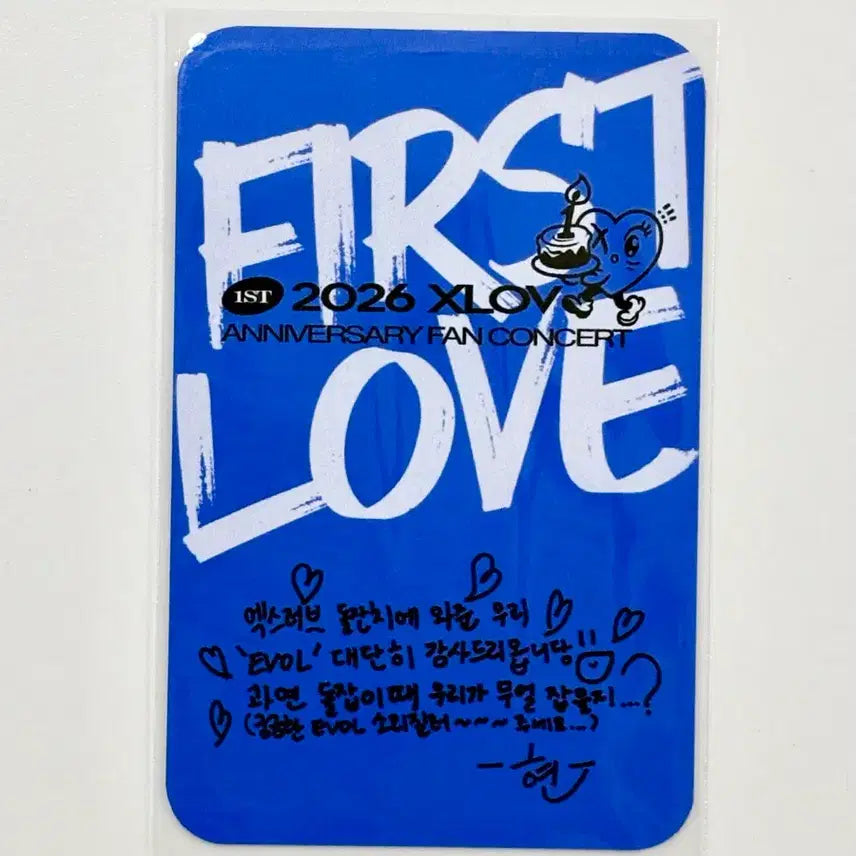 FIRST
1ST 2026 XLOV
ANNIVERSARY FAN CONCERT
LOVE
엑스러브 돌잔치에 와준 우리
'EVOL' 대단히 감사드리옵니당!!
과연 돌잡이때 우리가 무얼 잡을지...?
(궁금한 EVOL 소리질러~~~ 주세요...)
-현-